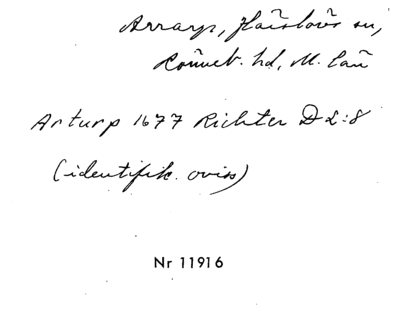 Arrarp, Hässlövs sn,
hd, M. län
Arturp 1677 Richter D 2:8
(identifik. oviss)
Nr 11916